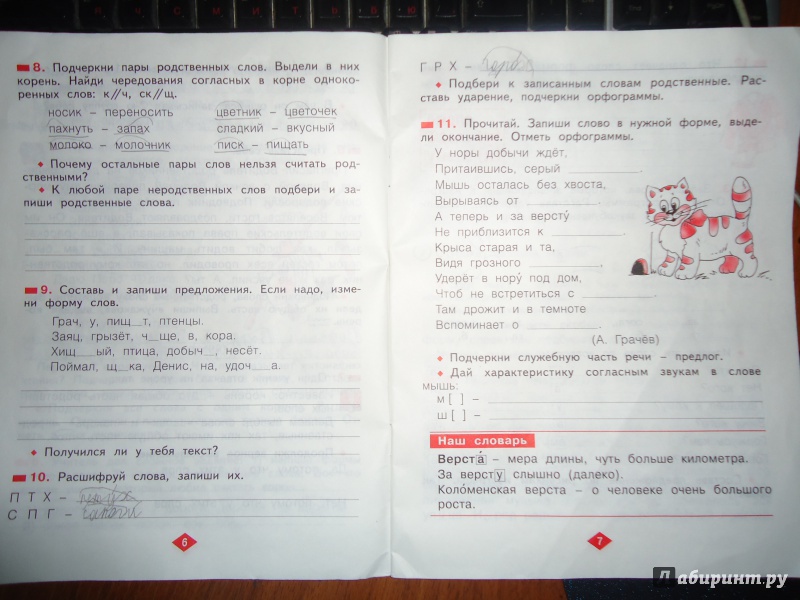 8. Подчеркни пары родственных слов. Выдели в них
корень. Найди чередования согласных в корне одноко-
ренных слов: к//ч, ск//щ.
носик – переносить цветник – цветочек
пахнуть – запах сладкий – вкусный
молоко – молочник писк – пищать
♦ Почему остальные пары слов нельзя считать род-
ственными?
♦ К любой паре неродственных слов подбери и за-
пиши родственные слова.
9. Составь и запиши предложения. Если надо, изме-
ни форму слов.
Грач, у, пищ__т, птенцы.
Заяц, грызёт, ч__ще, в, кора.
Хищ__ый, птица, добыч__, несёт.
Поймал, щ__ка, Денис, на, удоч__а.
♦ Получился ли у тебя текст?
10. Расшифруй слова, запиши их.
П Т Х –
С П Г – сапоги
6
Г Р Х – горох
♦ Подбери к записанным словам родственные. Рас-
ставь ударение, подчеркни орфограммы.
11. Прочитай. Запиши слово в нужной форме, выде-
ли окончание. Отметь орфограммы.
У норы добычи ждёт,
Притаившись, серый ________.
Мышь осталась без хвоста,
Вырываясь от ________.
А теперь и за версту́
Не приблизится к ________.
Крыса старая и та,
Видя грозного ________,
Удерёт в нору́ под дом,
Чтоб не встретиться с ________.
Там дрожит и в темноте
Вспоминает о ________.
(А. Грачёв)
♦ Подчеркни служебную часть речи – предлог.
♦ Дай характеристику согласным звукам в слове
мышь:
м [ ] –
ш [ ] –
Наш словарь
Верста́ – мера длины, чуть больше километра.
За версту слышно (далеко).
Коло́менская верста – о человеке очень большого
роста.
7
Лабиринт.ру